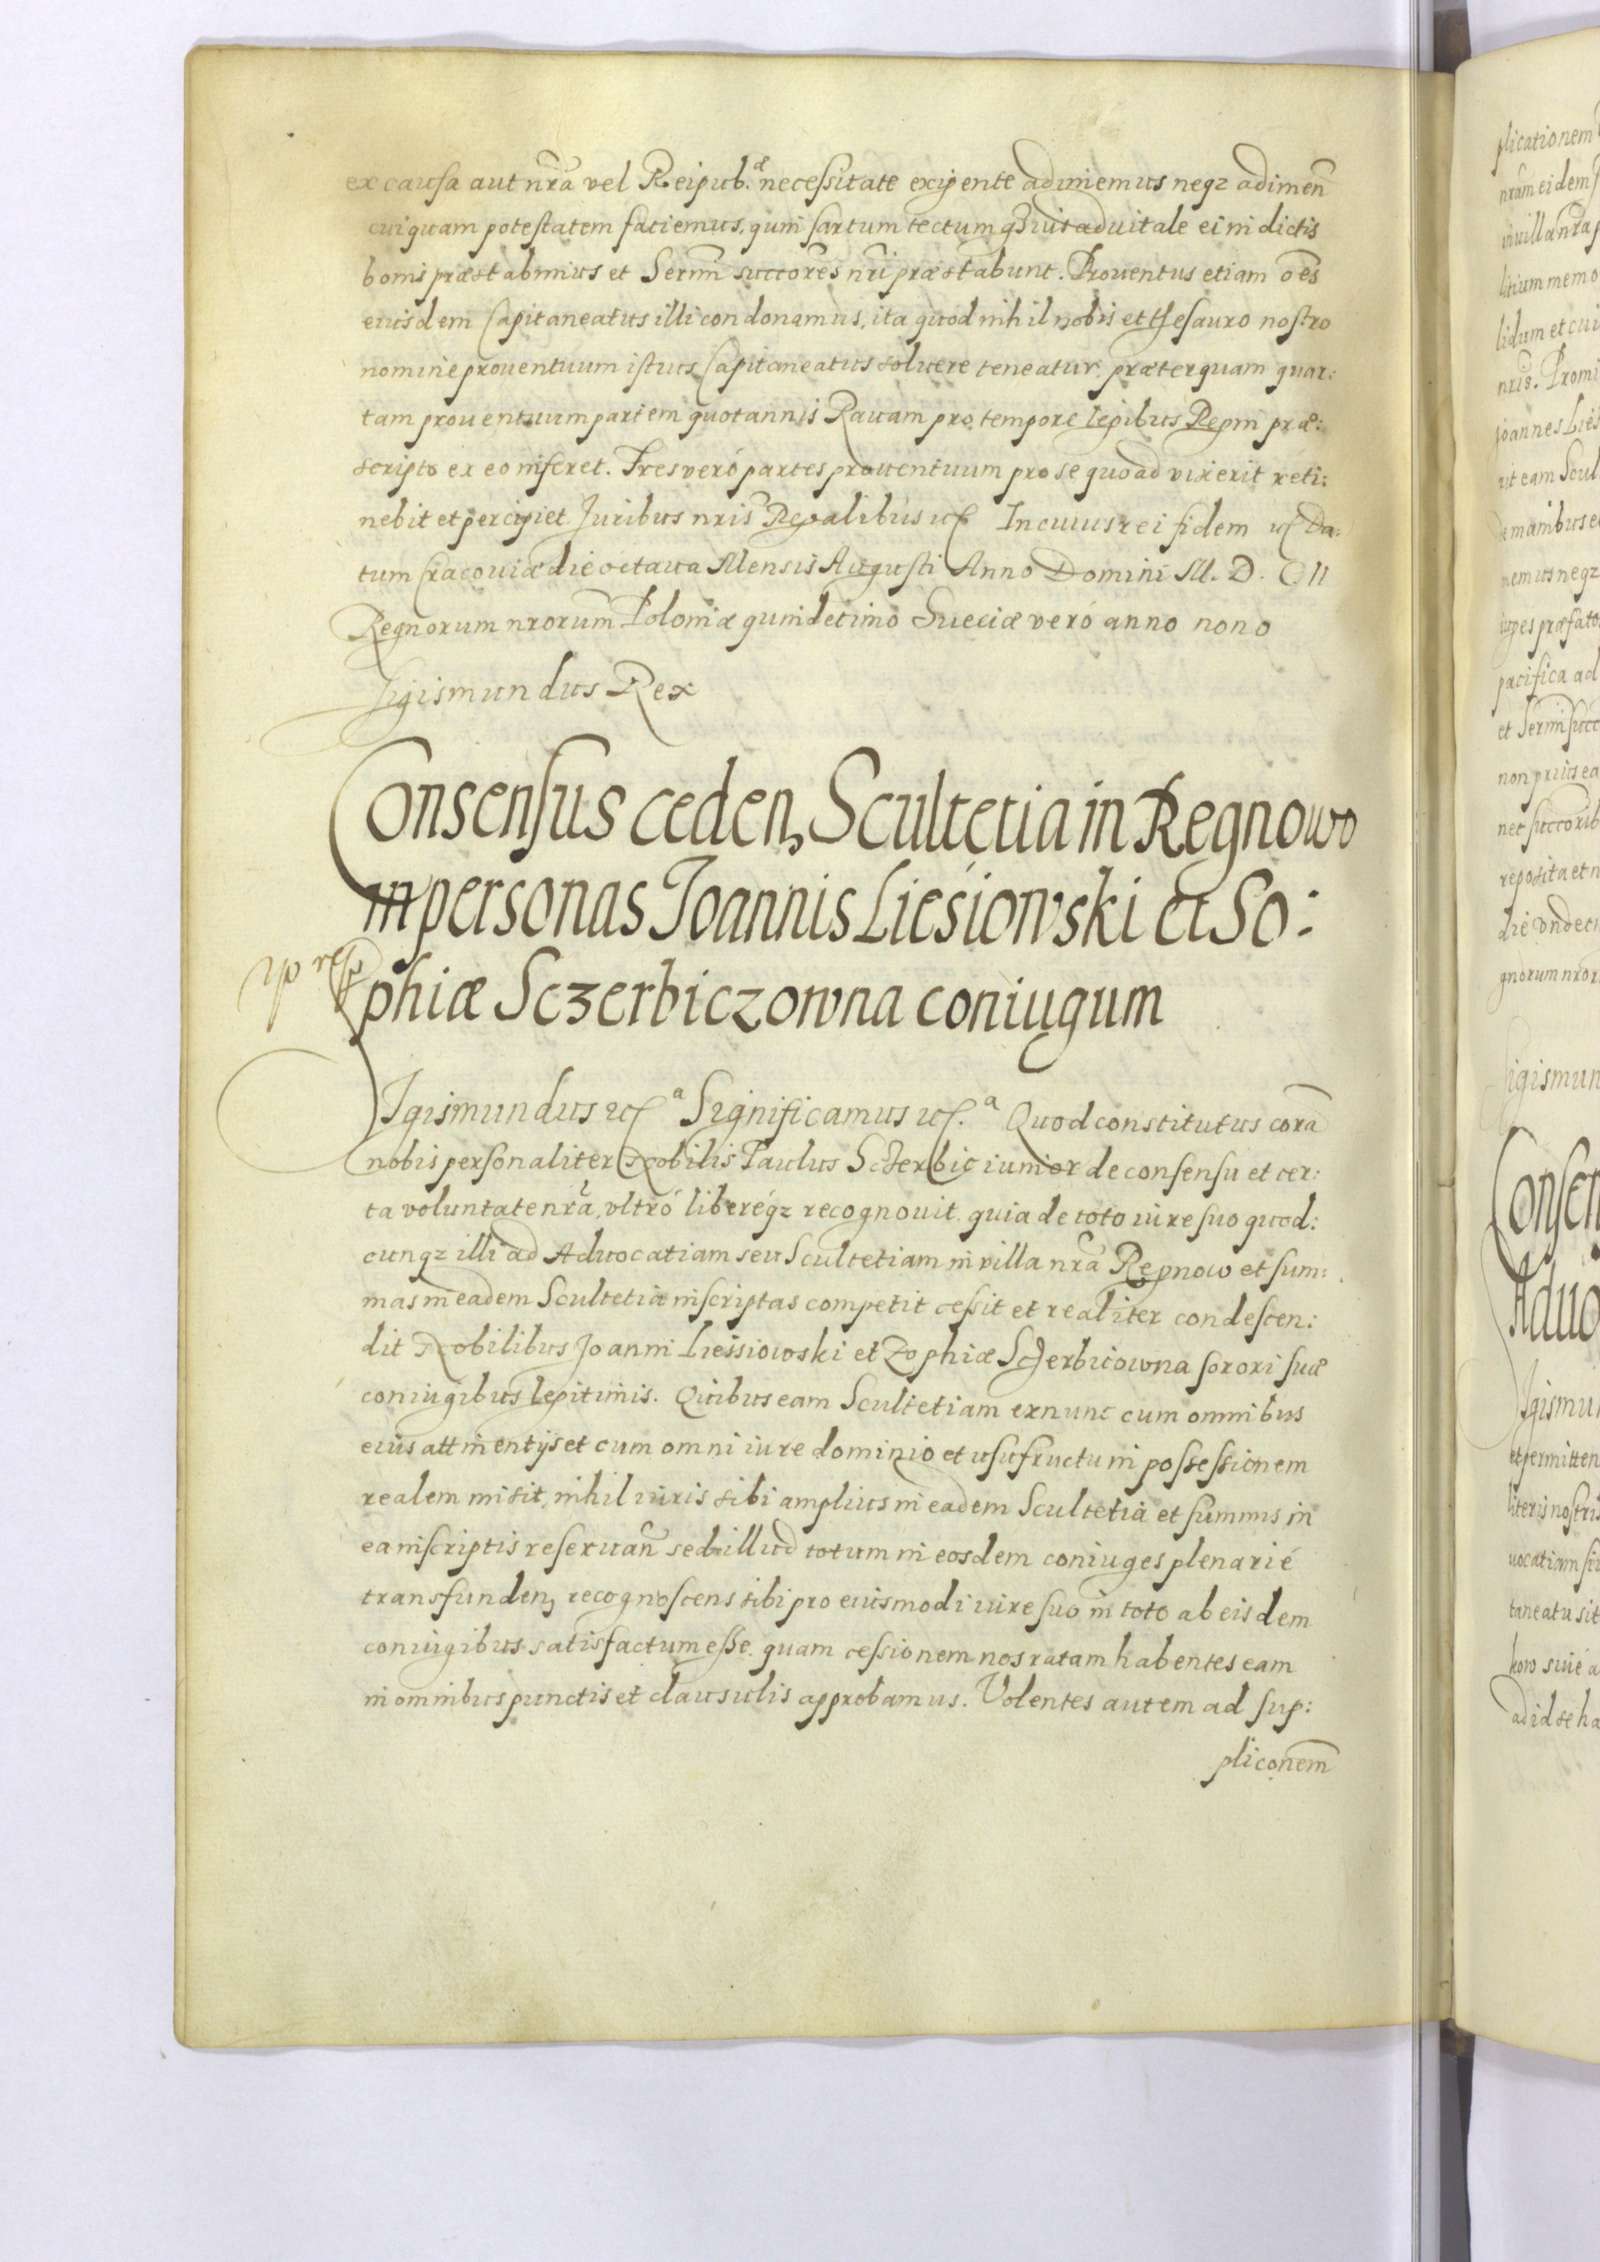 ex causa aut nrã vel Reipub.æ necessitate exigente adimemus neqz adimen̄
cuiquam potestatem faciemus, quin sartum tectum qz ius aduitale ei in dictis
bonis præstabimus et Sermi succores nri præstabunt. Prouentus etiam oēs
eiusdem Capitaneatus illi condonamus, ita quod nihil nobis et thesauro nostro
nomine prouentuum istius Capitaneatus soluere teneatur, præterquam quar:
tam prouentuum partem quotannis Rauam pro tempore legibus Regni præ:
scripto ex eo inferet. Tres veró partes prouentuum pro se quoad vixerit reti:
nebit et percipiet. Juribus nris Regalibus etc̄ In cuius rei fidem etc̄ Da:
tum Cracouiæ die octaua Mensis Augusti Anno Domini M. D. CII
Regnorum nrorum Poloniæ quindecimo Sueciæ veró anno nono
Sigismundus Rex
Consensus ceden, Scultetia in Regnowo
in personas Joannis Liesiowski et So:
phiæ Sczerbiczowna coniugum
Sigismundus etc̄.a Significamus etc̄.a Quod constitutus corã
nobis personaliter Nobilis Paulus Sczerbic iunior de consensu et cer:
ta voluntate nrã, vltró liberéqz recognouit, quia de toto iure suo quod:
cunqz illi ad Aduocatiam seu Scultetiam in villa nrã Regnow et sum:
mas in eadem Scultetia inscriptas competit cessit et realiter condescen:
dit Nobilibus Joanni Liessiowski et Zophiæ Sczerbicowna sorori suæ
coniugibus legitimis. Quibus eam Scultetiam ex nunc cum omnibus
eius attinentijs et cum omni iure dominio et usufructu in possessionem
realem misit, nihil iuris sibi amplius in eadem Scultetia et summis in
ea inscriptis reseruan̄ sed illud totum in eosdem coniuges plenarié
transfunden, recognoscens sibi pro eiusmodi iure suo in toto ab eisdem
coniugibus satisfactum esse. quam cessionem nos ratam habentes eam
in omnibus punctis et clausulis approbamus. Volentes autem ad sup:
pliconem̄
plicationem
nram eidem
in villa nrã
litium memo
lidum et cui
nris. Promi
Joannes Lies
ut eam Scul
de manibus e
nemus neqz
iuges præfato
pacifica ad
et Sermi succ
non prius ea
nec succorib
reposita et n
die vndeci
gnorum nror
Sigismun
Consen
Aduo
Sigismu
et permitten
literis nostris
uocatiam siu
taneatu sit
kow siue a
ad id se ha